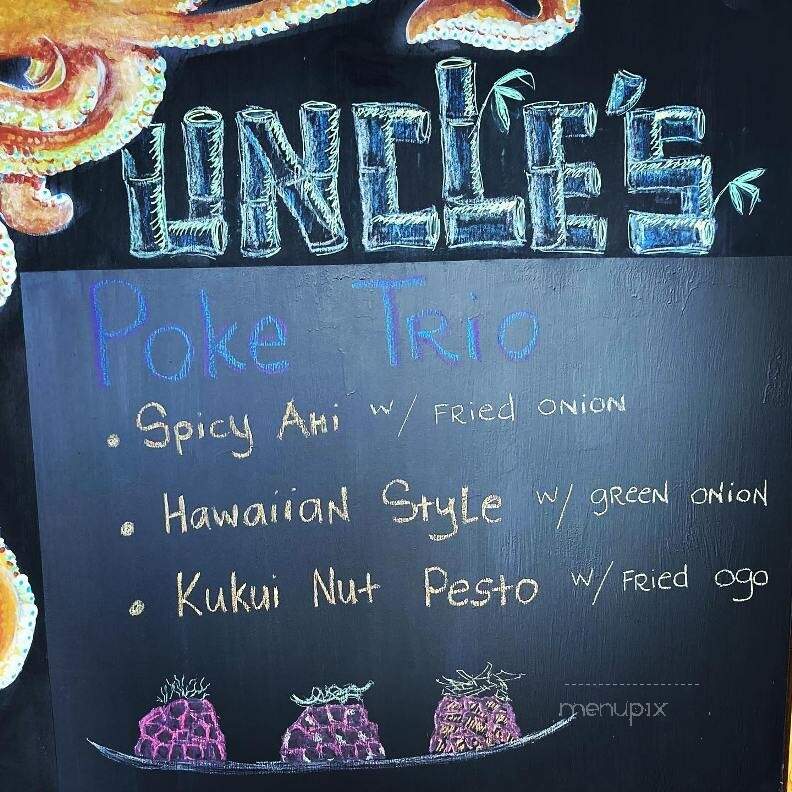 UNCLE'S
Poke Trio
• Spicy Ahi w/ Fried onion
• Hawaiian Style w/ green onion
• Kukui Nut Pesto w/ Fried ogo
menupix